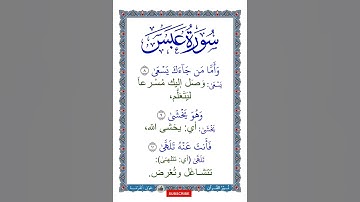 سُورَةُ عَبَسَ
وَأَمَّا مَن جَآءَكَ يَسْعَىٰ ٨
يَسْعَىٰ: وَصَلَ إليكَ مُسْرعاً
لِيَتَعَلَّم،
وَهُوَ يَخْشَىٰ ٩
يَخْشَىٰ: أي: يخشَى الله،
فَأَنتَ عَنْهُ تَلَهَّىٰ ١٠
تَلَهَّىٰ (أي: تتلهىٰ):
تتشاغل وتُعْرِض.
SUBSCRIBE